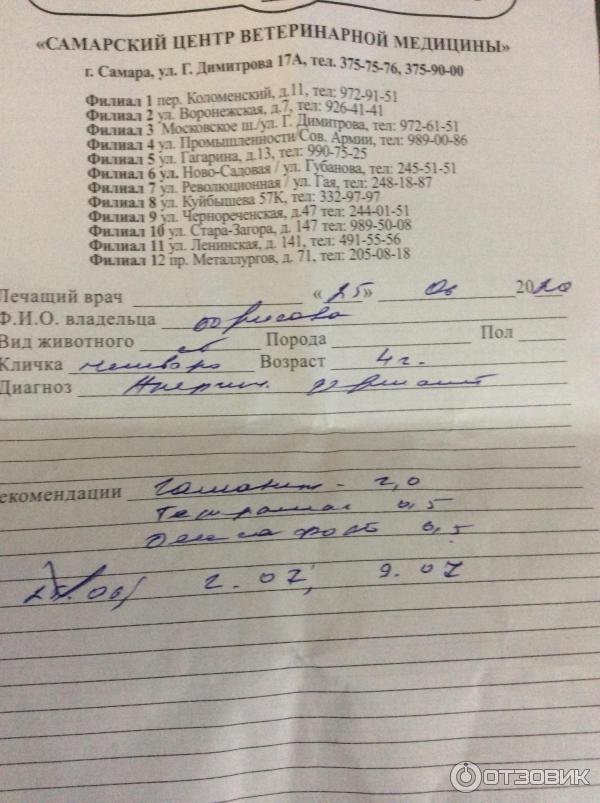 «САМАРСКИЙ ЦЕНТР ВЕТЕРИНАРНОЙ МЕДИЦИНЫ»
г. Самара, ул. Г. Димитрова 17А, тел. 375-75-76, 375-90-00
Филиал 1 пер. Коломенский, д.11, тел: 972-91-51
Филиал 2 ул. Воронежская, д.7, тел: 926-41-41
Филиал 3 Московское ш./ул. Г. Димитрова, тел: 972-61-51
Филиал 4 ул. Промышленности/Сов. Армии, тел: 989-00-86
Филиал 5 ул. Гагарина, д.13, тел: 990-75-25
Филиал 6 ул. Ново-Садовая / ул. Губанова, тел: 245-51-51
Филиал 7 ул. Революционная / ул. Гая, тел: 248-18-87
Филиал 8 ул. Куйбышева 57К, тел: 332-97-97
Филиал 9 ул. Чернореченская, д.47 тел: 244-01-51
Филиал 10 ул. Стара-Загора, д. 147 тел: 989-50-08
Филиал 11 ул. Ленинская, д. 141, тел: 491-55-56
Филиал 12 пр. Металлургов, д. 71, тел: 205-08-18
Лечащий врач «25» 06 2020
Ф.И.О. владельца
Вид животного Порода Пол
Кличка Возраст 4 г.
Диагноз дерматит
екомендации Гамавит - 2,0
0,5
0,5
25.06, 2.07, 9.07
ОТЗОВИК